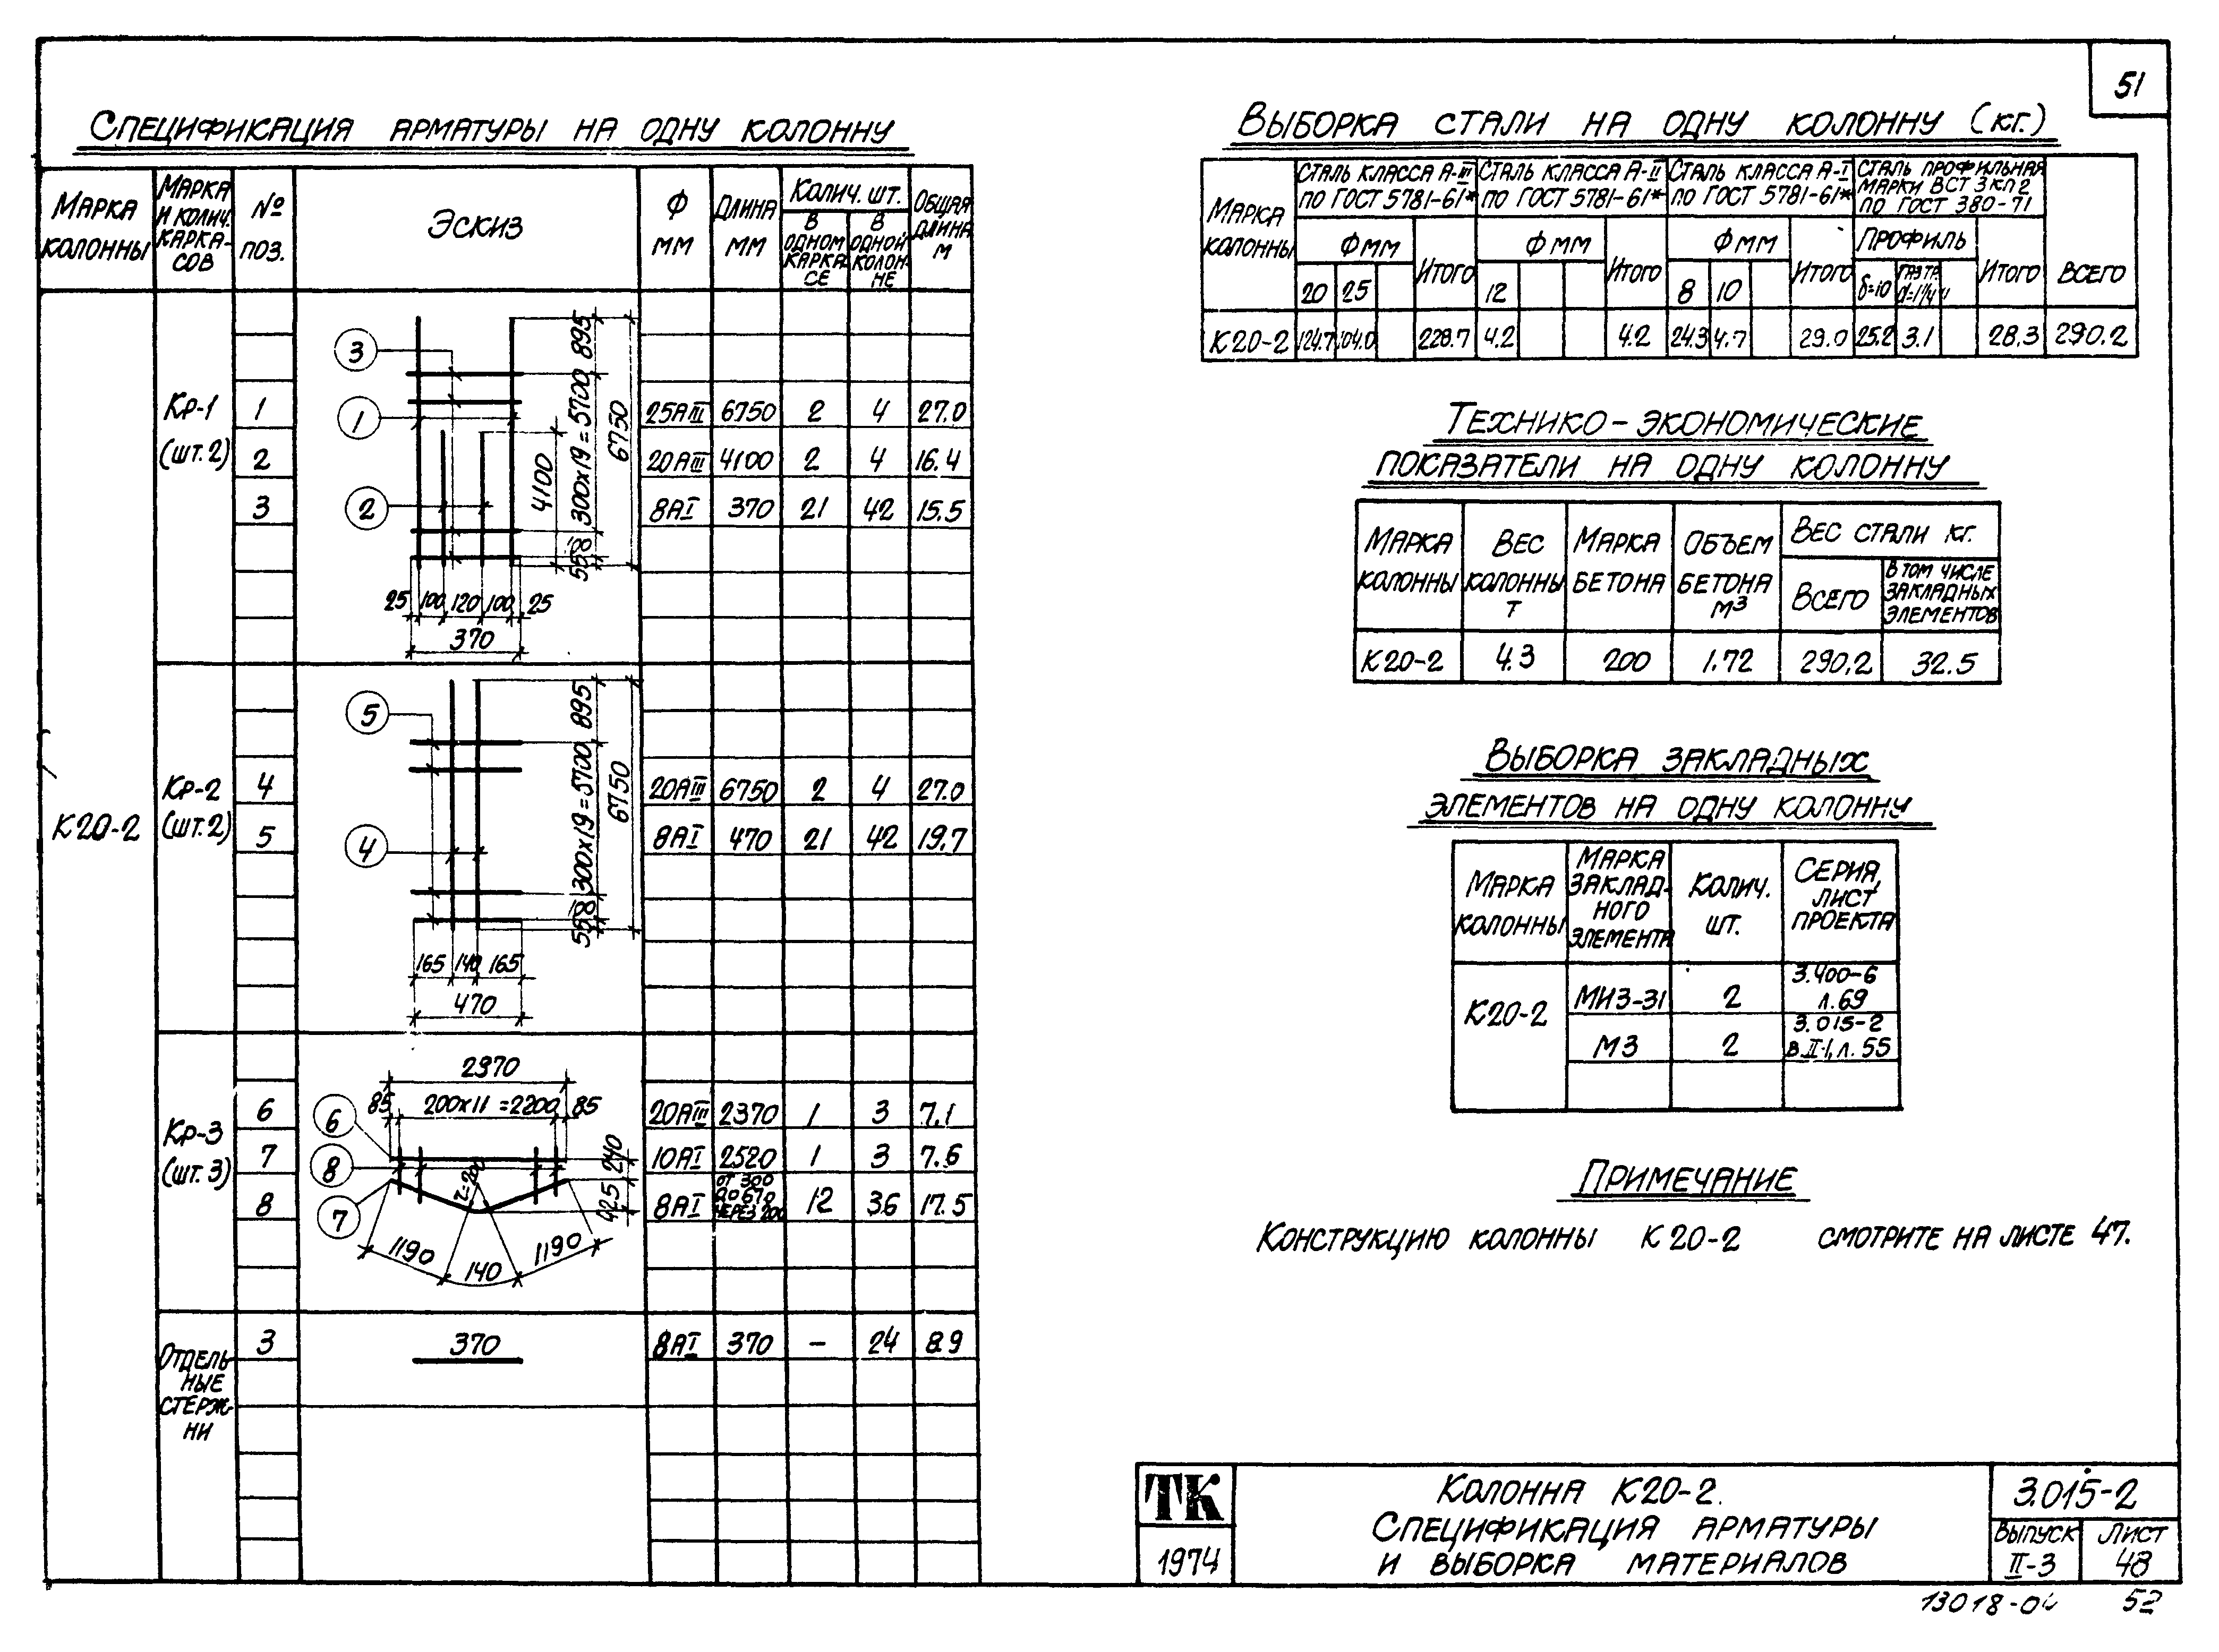 51
Спецификация арматуры на одну колонну
Марка колонны
Марка и колич. карка-сов
№ поз.
Эскиз
Ф мм
Длина мм
Колич. шт.
в одном карка-се
в одной колон-не
Общая длина м
К20-2
Кр-1 (шт.2)
1 25АIII 6750 2 4 27.0
2 20АIII 4100 2 4 16.4
3 8АI 370 21 42 15.5
3
1
2
895
300х19=5700
100
55
6750
4100
25 100 120 100 25
370
Кр-2 (шт.2)
4 20АIII 6750 2 4 27.0
5 8АI 470 21 42 19.7
5
4
895
300х19=5700
55
6750
165 140 165
470
Кр-3 (шт.3)
6 20АIII 2370 1 3 7.1
7 10АI 2520 1 3 7.6
8 8АI от 300 до 670 через 200 12 36 17.5
2370
85 200х11=2200 85
6
8
7
240
425
r=200
1190 140 1190
Отдель-ные стерж-ни
3 370 8АI 370 – 24 8.9
Выборка стали на одну колонну (кг.)
Марка колонны
Сталь класса А-III по ГОСТ 5781-61*
Сталь класса А-II по ГОСТ 5781-61*
Сталь класса А-I по ГОСТ 5781-61*
Сталь профильная марки ВСТ 3кп2 по ГОСТ 380-71
Всего
Фмм Итого Фмм Итого Фмм Итого Профиль Итого
20 25 12 8 10 δ=10 газ.тр. d=1¼"
К20-2 124.7 104.0 228.7 4.2 4.2 24.3 4.7 29.0 25.2 3.1 28.3 290.2
Технико-экономические
показатели на одну колонну
Марка колонны
Вес колонны т
Марка бетона
Объем бетона м³
Вес стали кг.
Всего
в том числе закладных элементов
К20-2 4.3 200 1.72 290,2 32.5
Выборка закладных
элементов на одну колонну
Марка колонны
Марка заклад-ного элемента
Колич. шт.
Серия, лист проекта
К20-2
МИ3-31 2 3.400-6 л.69
М3 2 3.015-2 в.II-1, л.55
Примечание
Конструкцию колонны К20-2 смотрите на листе 47.
ТК
1974
Колонна К20-2.
Спецификация арматуры
и выборка материалов
3.015-2
Выпуск II-3
Лист 48
52